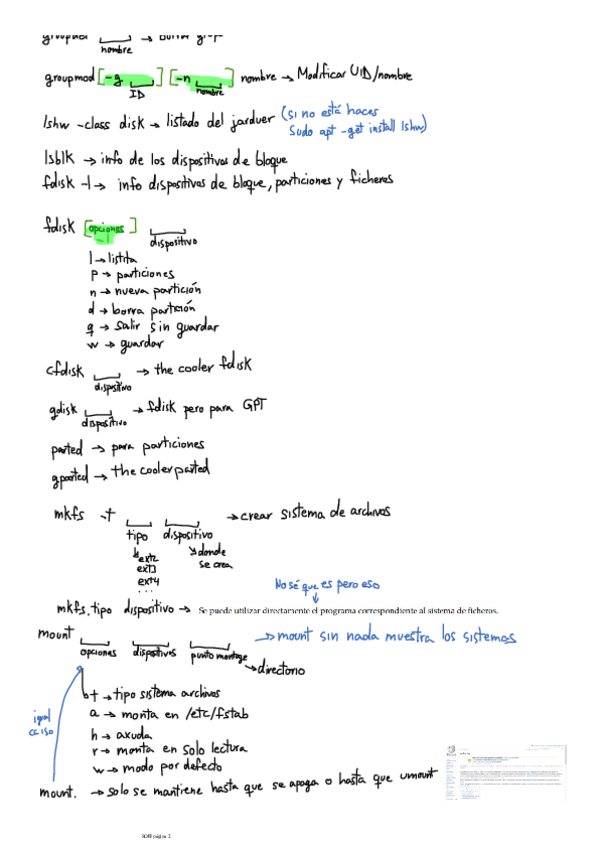 nombre
groupmod [-g ] [-n ] nombre → Modificar UID/nombre
ID nombre
lshw -class disk → listado del jarduer (si no está haces
Sudo apt -get install lshw)
lsblk → info de los dispositivos de bloque
fdisk -l → info dispositivas de bloque, particiones y ficheres
fdisk [opciones]
-l dispositivo
l → listita
p → particiones
n → nueva partición
d → borra partición
q → salir sin guardar
w → guardar
cfdisk → the cooler fdisk
dispositivo
gdisk → fdisk pero para GPT
dispositivo
parted → para particiones
gparted → the cooler parted
mkfs -t → crear sistema de archivos
tipo dispositivo
ext2 donde
ext3 se crea
ext4
...
No sé que es pero eso
mkfs.tipo dispositivo → Se puede utilizar directamente el programa correspondiente al sistema de ficheros.
mount → mount sin nada muestra los sistemas
opciones dispositivos punto montaje
→ directorio
t → tipo sistema archivos
a → monta en /etc/fstab
h → axuda
r → monta en solo lectura
w → modo por defecto
igual
mount. → solo se mantiene hasta que se apaga o hasta que umount
SOM página 2